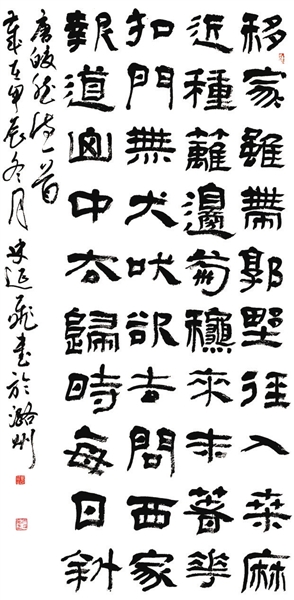 移家雖帶郭野徑入桒麻
近種籬邊菊穐來未著花
扣門無犬吠欲去問西家
報道山中去歸時每日斜
唐皎然詩一首
歲在甲辰冬月史延飛書於潞州